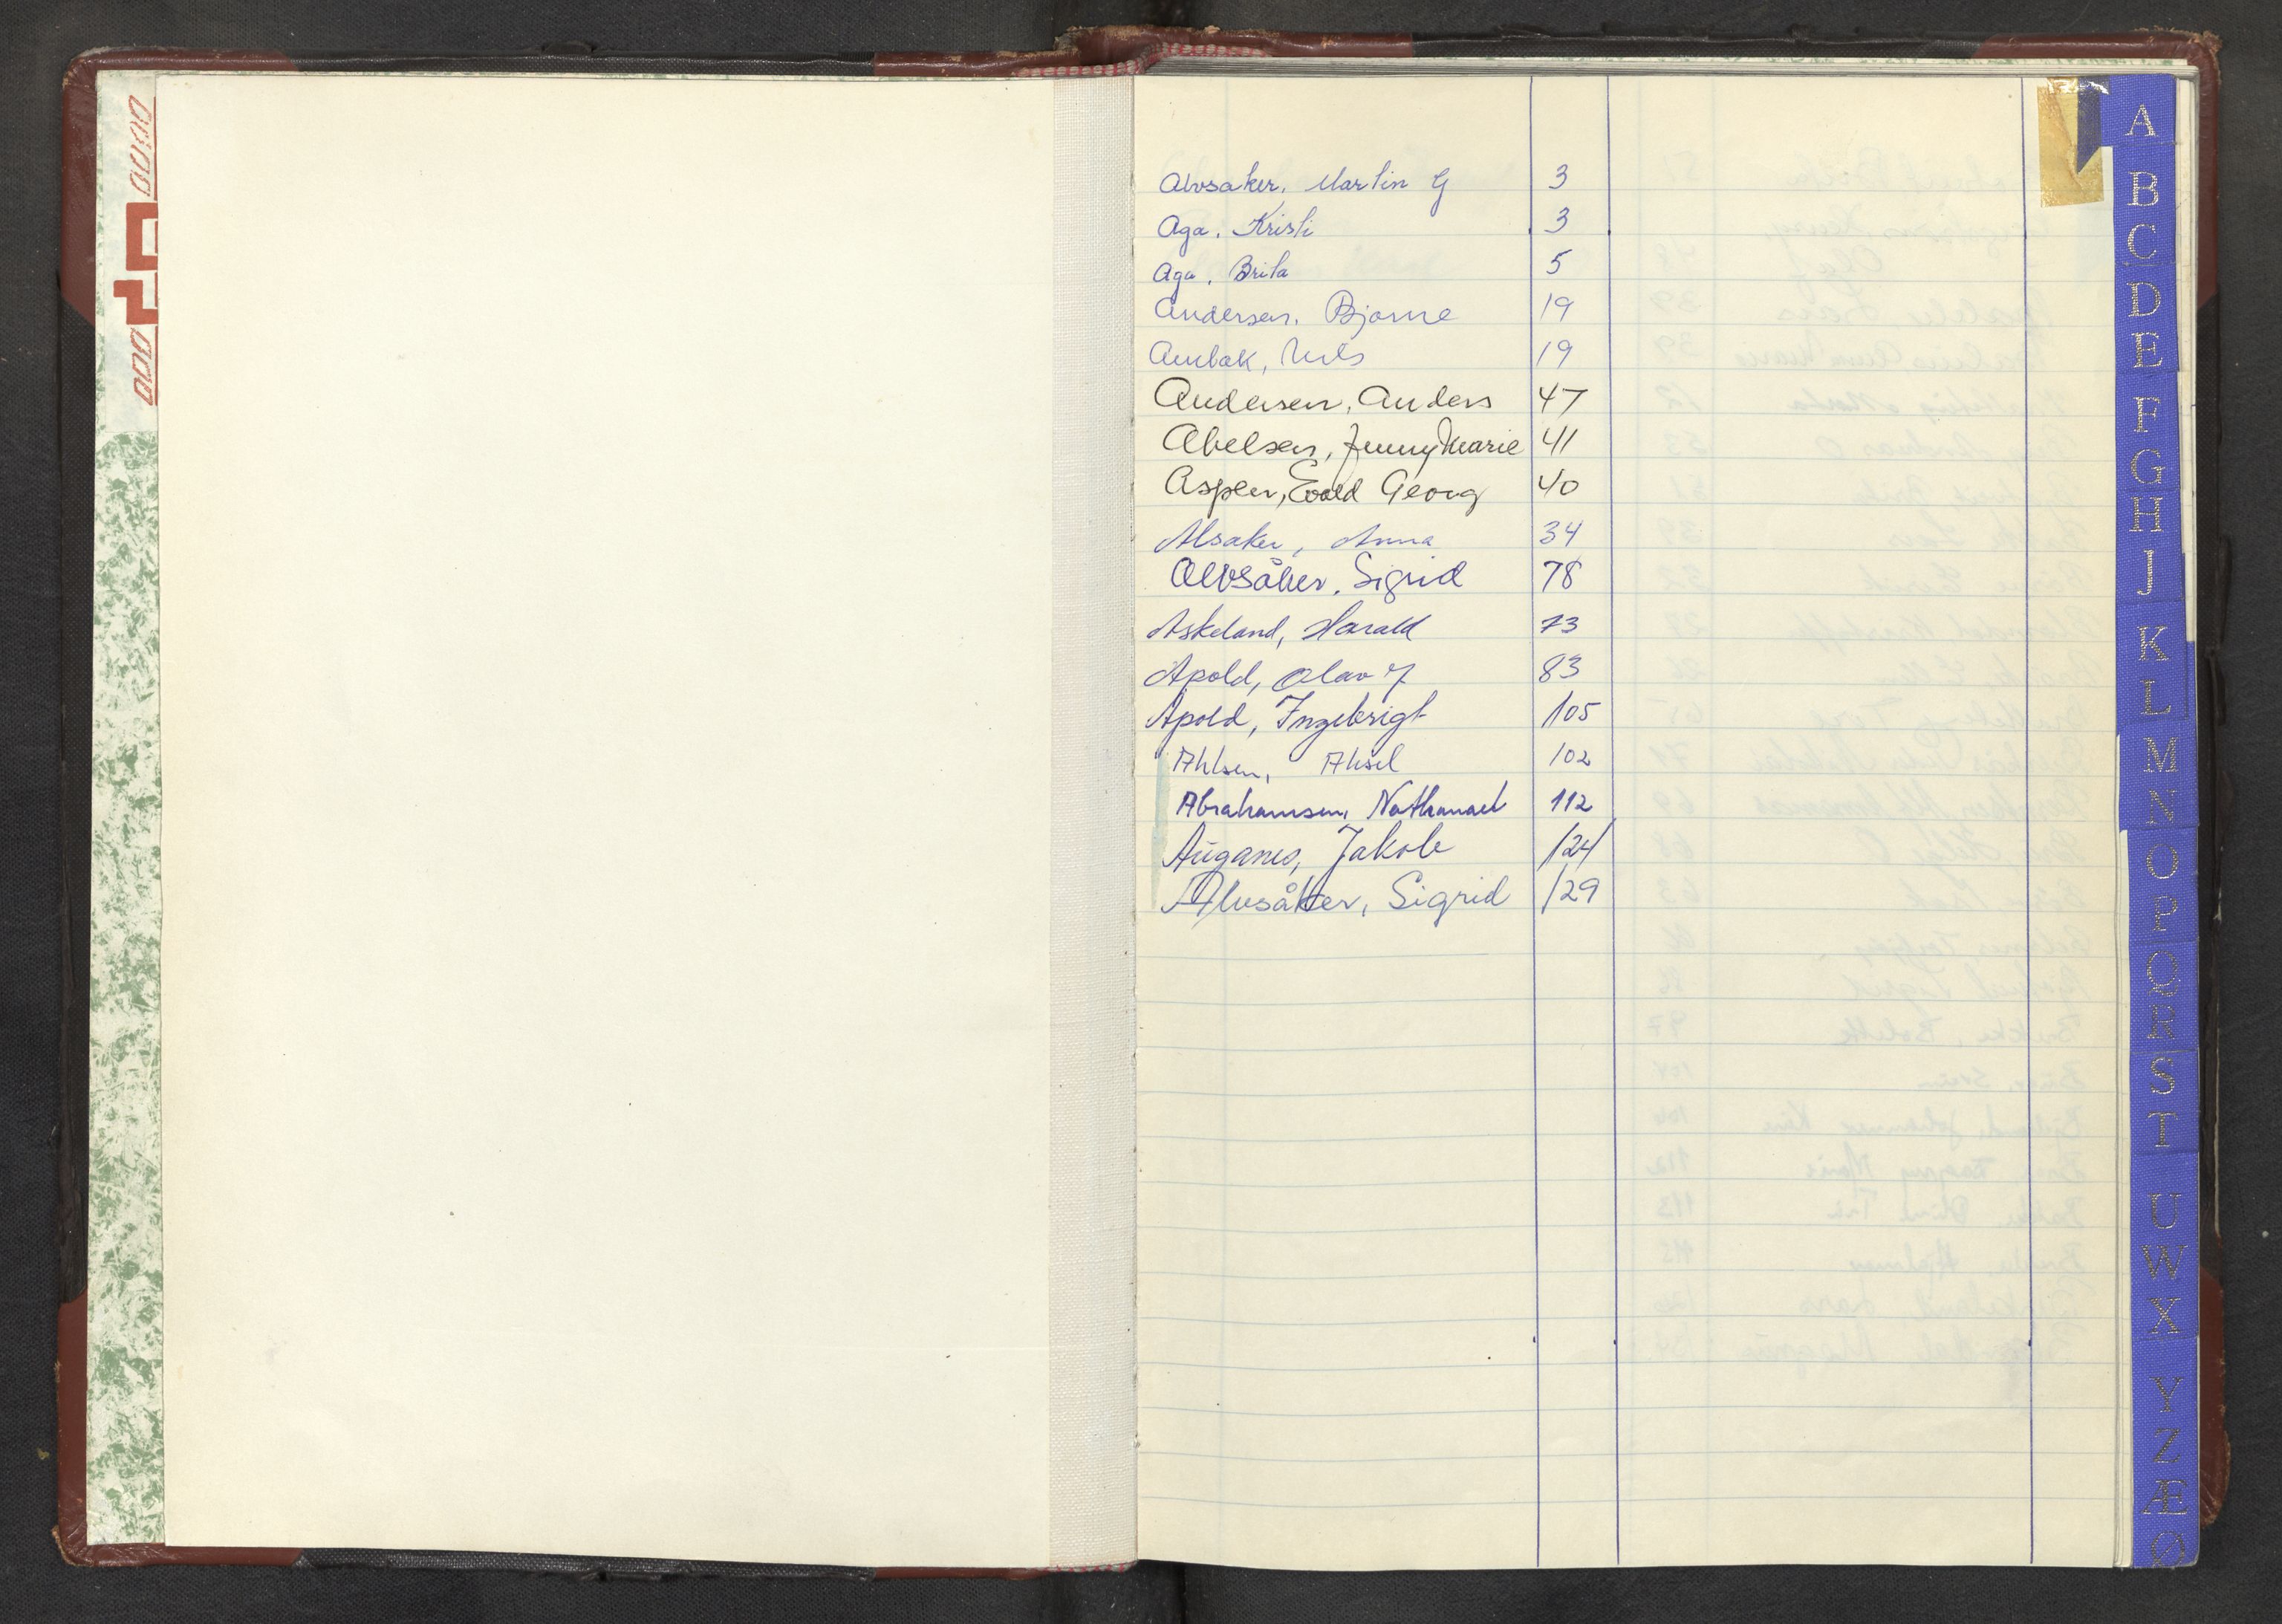 Alvsaker, Martin G 3
Aga, Kristi 3
Aga, Brita 5
Andersen, Bjarne 19
Aulbak, Nils 19
Andersen, Anders 47
Abelsen, Jenny Marie 41
Aspen, Evald Georg 40
Alsaker, Anna 34
Alvsåker, Sigrid 78
Askeland, Harald 73
Apold, Olav J 83
Apold, Ingebrigt 105
Ahlsen, Aksel 102
Abrahamsen, Nathanael 112
Auganes, Jakob 124
Alvsåker, Sigrid 129
A
B
C
D
E
F
G
H
J
K
L
M
N
O
P
Q
R
S
T
U
W
X
Y
Z
Æ
Ø